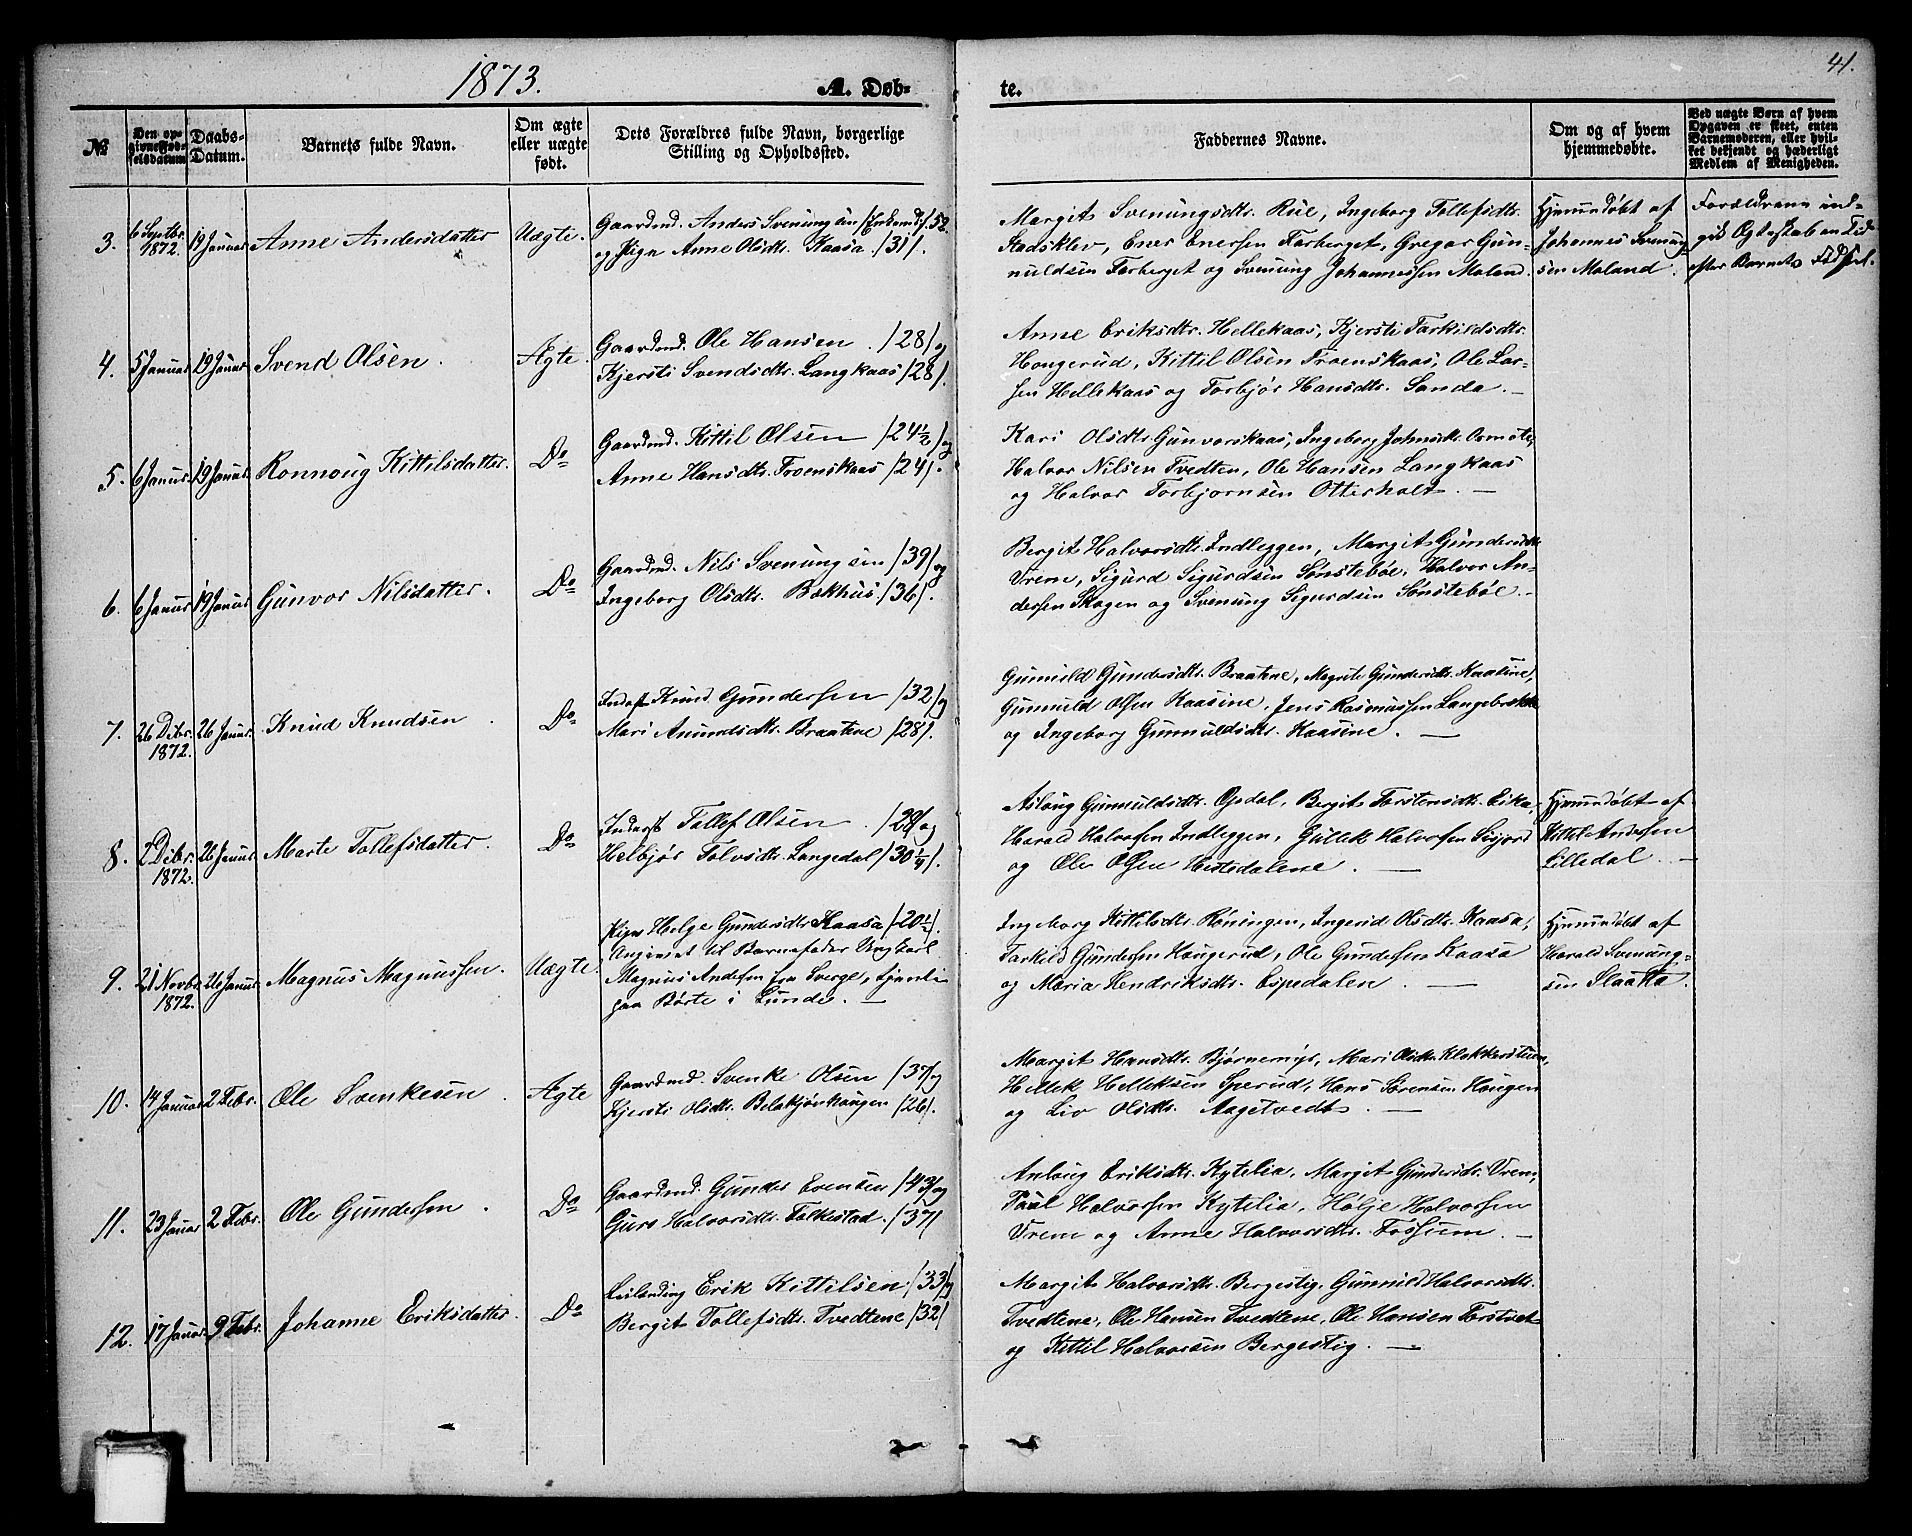 1873.
A. Døb-
te.
41.
№
Den op-
givne Fød-
selsdatum
Daabs-
Datum.
Barnets fulde Navn.
Om ægte
eller uægte
født.
Dets Forældres fulde Navn, borgerlige
Stilling og Opholdssted.
Faddernes Navne.
Om og af hvem
hjemmedøbte.
Ved uægte Børn af hvem
Opgaven er skeet, enten
Barnemoderen, eller hvil-
ket bekjendt og hæderligt
Medlem af Menigheden.
3.
6 Septbr.
1872.
19 Januar
Anne Andersdatter
Uægte.
Gaardmd. Anders Svenungsen (Enkemd.) /52
og Pige Anne Olsdtr. Kaasa /31/.
Margit Svenungsdtr. Rue, Ingeborg Tollefsdtr.
Stadsklev, Ener Enersen Farberget, Gregar Gun-
nuldsen Farberget og Svenung Johannessen Moland.
Hjemmedøbt af
Johannes Svenung-
sen Moland.
Forældrene ind-
gik Ægteskab en Tid
efter Barnets Fødsel.
4.
5 Januar
19 Januar
Svend Olsen.
Ægte.
Gaardmd. Ole Hansen. /28/ og
Kjersti Svendsdtr. Langkaas /28/.
Anne Eriksdtr. Hellekaas, Kjersti Tarkildsdtr.
Hougerud, Kittil Olsen Troenskaas, Ole Lar-
sen Hellekaas og Torbjør Hansdtr. Sanda. —
5.
6 Januar.
19 Januar.
Ronnoug Kittilsdatter.
Do
Gaardmd. Kittil Olsen /24½/ og
Anne Hansdtr. Troenskaas /24/.
Kari Olsdtr. Gunvorskaas, Ingeborg Johnsdtr.
Halvor Nilsen Tvedten, Ole Hansen Langkaas
og Halvor Torbjørnsen Otterholt. —
6.
6 Januar
19 Januar
Gunvor Nilsdatter.
Do
Gaardmd. Nils Svenungsen /39/ og
Ingeborg Olsdtr. Bakhus. /36/.
Bergit Halvorsdtr. Indleggen, Margit Gundersdtr.
Vrem, Sigurd Sigurdsen Sønstebøe, Halvor An-
dersen Skogen og Svenung Sigurdsen Sønstebøe. —
7.
26 Dibr.
1872.
26 Januar.
Knud Knudsen.
Do
Inderst Knud Gundersen /32/ og
Mari Anundsdtr. Braatene /28/.
Gunuld Gundersdtr. Braatene, Margit Gundersdtr. Kaasine,
Gunnuld Olsen Kaasine, Jens Rasmussen
og Ingeborg Gunnuldsdtr. Kaasine. —
8.
2 Dibr.
1872.
26 Januar
Marte Tollefsdatter.
Do
Inderst Tollef Olsen. /28/ og
Helbjør Tolvsdtr. Langedal /30¼/.
Aslaug Gunnuldsdtr. Opdal, Bergit Torstensdtr. Eika,
Harald Halvorsen Indleggen, Gullik Halvorsen
og Ole Olsen Hestedalene. —
Hjemmedøbt af
Kittil Andersen
Lilledal. —
9.
21 Novbr.
1872.
26 Januar
Magnus Magnussen.
Uægte.
Pige Helge Gundersdtr. Kaasa /20½/.
Angivet til Barnefader Ungkarl
Magnus Andersen fra Sverge, tjente
paa Børte i Lunde. —
Ingeborg Kittilsdtr. Røningen, Ingerid Olsdtr. Kaasa,
Tarkild Gundersen Hougerud, Ole Gundersen Kaasa
og Maria Hendriksdtr. Espedalen. —
Hjemmedøbt af
Harald Svenung-
sen Slaatta.
10.
14 Januar
2 Febr.
Ole Svenkesen.
Ægte
Gaardmd. Svenke Olsen /37/ og
Kjersti Olsdtr. Belakjønhaugen /26/.
Margit Hansdtr. Bjørnemyr, Mari Olsdtr. Klokkerstuen,
Hellek Helleksen Sperud, Hans Sørensen Hougen
og Liv Olsdtr. Aagetvedt. —
11.
23 Januar
2 Febr.
Ole Gundersen.
Do
Gaardmd. Gunder Evensen /43/ og
Guro Halvorsdtr. Folkestad. /37/
Anlaug Eriksdtr. Kytelia, Margit Gundersdtr. Vrem,
Paul Halvorsen Kytelia, Hølje Halvorsen
Vrem og Anne Halvorsdtr. Fossum. —
12.
17 Januar.
9 Febr.
Johanne Eriksdatter.
Do
Leilending Erik Kittilsen /33/ og
Bergit Tollefsdtr. Tvedtene /32/
Margit Halvorsdtr. Bergestig, Gunnuld Halvorsdtr.
Tvedtene, Ole Hansen Tvedtene, Ole Hansen Torstvet
og Kittil Halvorsen Bergestig. —